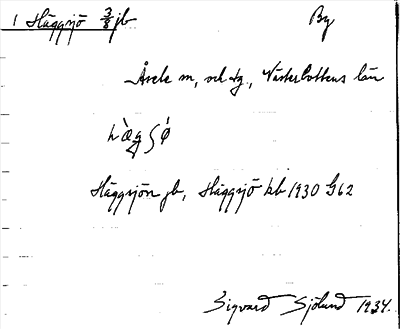 1 Häggsjö 3/8 jb By
Åsele sn, och tg, Västerbottens län
hæ̀gʃǿ
Häggsjön jb, Häggsjö kb 1930 G62
Sigvard Sjölund 1934.